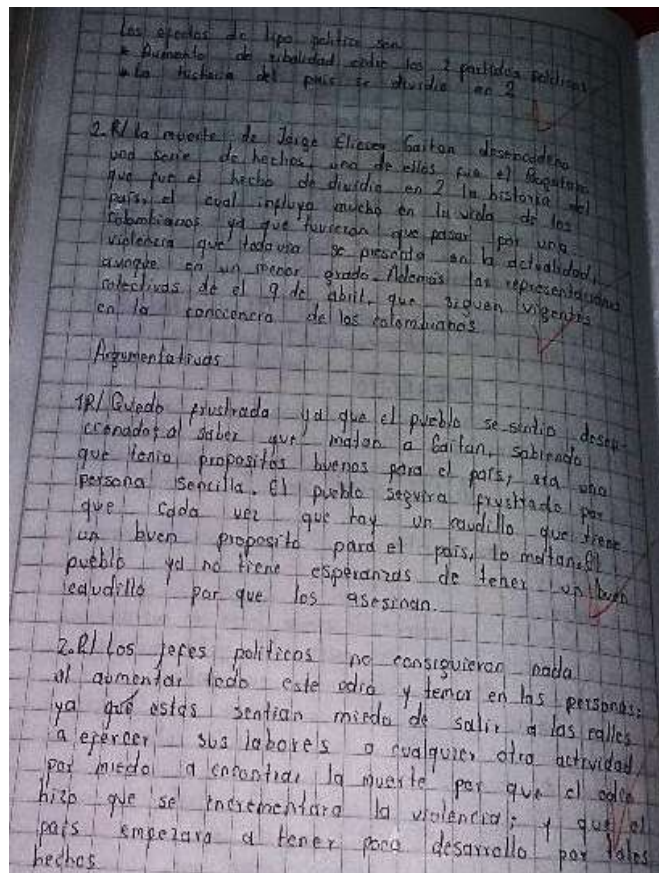 los efectos de tipo politico son
* Aumento de ribalidad entre los 2 partidos politicos
* La historia del pais se dividio en 2
2.R/ la muerte de Jorge Eliecer Gaitan desencadeno
una serie de hechos, uno de ellos fue el Bogotazo
que fue el hecho de dividio en 2 la historia del
pais, el cual influyo mucho en la vida de los
colombianos ya que tuvieron que pasar por una
violencia que todavia se presenta en la actualidad,
aunque en un menor grado. Ademas las representaciones
colectivas de el 9 de abril, que siguen vigentes
en la conciencia de los colombianos
Argumentativas
1R/ Quedo frustrada ya que el pueblo se sintio
al saber que matan a Gaitan, sabiendo
que tenia propositos buenos para el pais, era una
persona sencilla. El pueblo seguira frustrado por
que cada vez que hay un caudillo que tiene
un buen proposito para el pais, lo matan. El
pueblo ya no tiene esperanzas de tener un buen
caudillo por que los asesinan.
2.R/ los jefes politicos no consiguieron nada
al aumentar todo este odio y temor en las personas;
ya que estas sentian miedo de salir a las calles
a ejercer sus labores o cualquier otra actividad,
por miedo a encontrar la muerte por que el odio
hizo que se incrementara la violencia; y que el
pais empezara a tener poco desarrollo por tales
hechos